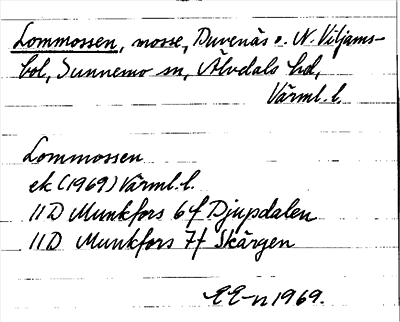 Lommossen, mosse, Duvenäs o. N. Viljams-
bol, Sunnemo sn, Älvdals hd,
Värml. l.
Lommossen
ek (1969) Värml. l.
11D Munkfors 6f Djupdalen
11D Munkfors 7f Skärgen
EE-n 1969.